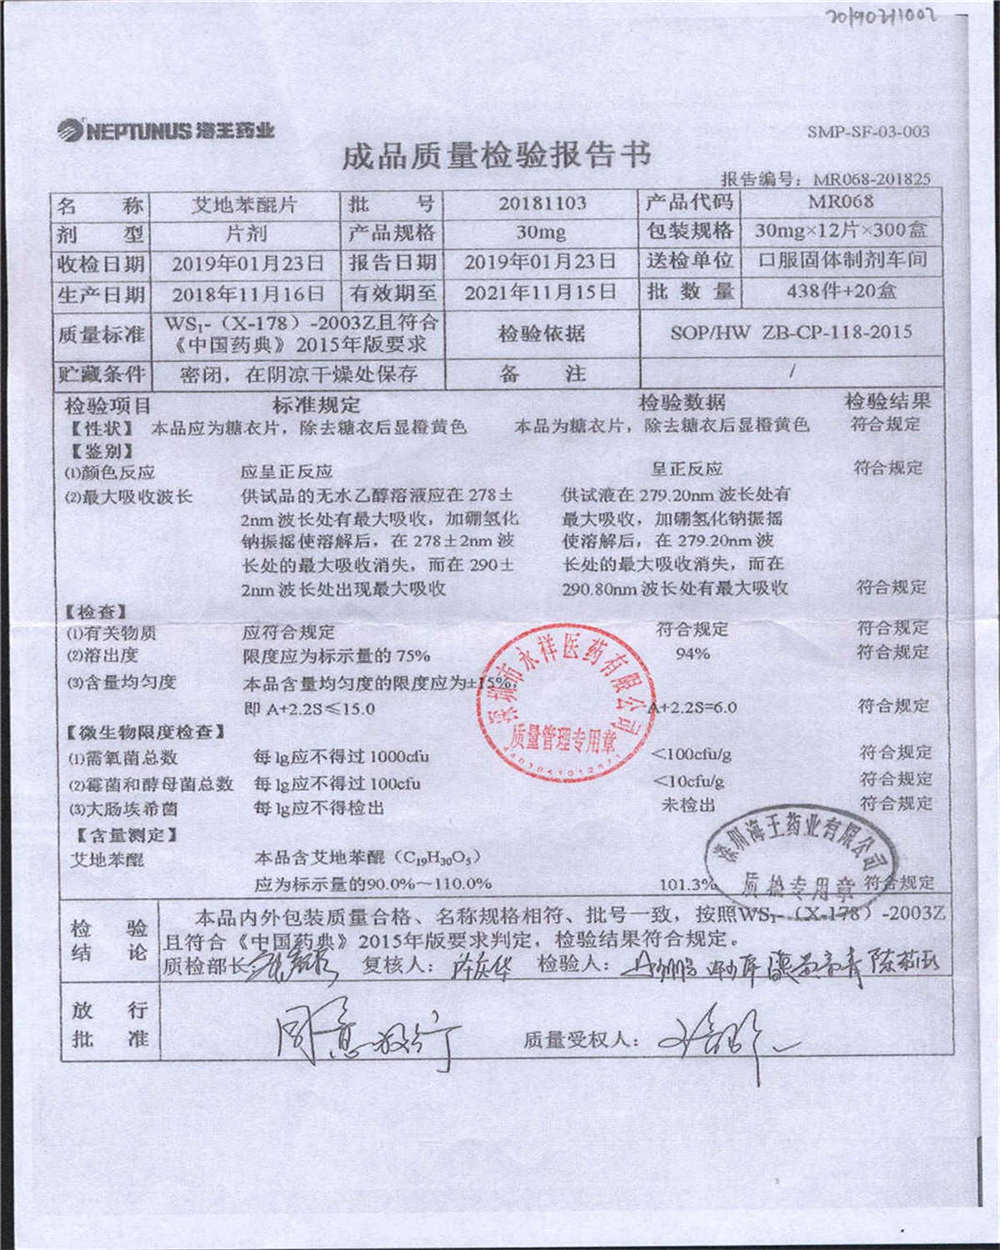 20190211002
NEPTUNUS 海王药业
SMP-SF-03-003
成品质量检验报告书
报告编号：MR068-201825
名 称 艾地苯醌片 批 号 20181103 产品代码 MR068
剂 型 片剂 产品规格 30mg 包装规格 30mg×12片×300盒
收检日期 2019年01月23日 报告日期 2019年01月23日 送检单位 口服固体制剂车间
生产日期 2018年11月16日 有效期至 2021年11月15日 批 数 量 438件+20盒
质量标准 WS₁-（X-178）-2003Z且符合《中国药典》2015年版要求 检验依据 SOP/HW ZB-CP-118-2015
贮藏条件 密闭，在阴凉干燥处保存 备 注 /
检验项目 标准规定 检验数据 检验结果
【性状】 本品应为糖衣片，除去糖衣后显橙黄色 本品为糖衣片，除去糖衣后显橙黄色 符合规定
【鉴别】
⑴颜色反应 应呈正反应 呈正反应 符合规定
⑵最大吸收波长 供试品的无水乙醇溶液应在 278± 供试液在 279.20nm 波长处有
2nm 波长处有最大吸收，加硼氢化 最大吸收，加硼氢化钠振摇
钠振摇使溶解后，在 278±2nm 波 使溶解后，在 279.20nm 波
长处的最大吸收消失，而在 290± 长处的最大吸收消失，而在
2nm 波长处出现最大吸收 290.80nm 波长处有最大吸收 符合规定
【检查】
⑴有关物质 应符合规定 符合规定 符合规定
⑵溶出度 限度应为标示量的 75% 94% 符合规定
⑶含量均匀度 本品含量均匀度的限度应为±15%，
即 A+2.2S≤15.0 A+2.2S=6.0 符合规定
【微生物限度检查】
⑴需氧菌总数 每 1g应不得过 1000cfu <100cfu/g 符合规定
⑵霉菌和酵母菌总数 每 1g应不得过 100cfu <10cfu/g 符合规定
⑶大肠埃希菌 每 1g应不得检出 未检出 符合规定
【含量测定】
艾地苯醌 本品含艾地苯醌（C₁₉H₃₀O₅）
应为标示量的90.0%～110.0% 101.3% 符合规定
深圳市永祥医药有限公司
质量管理专用章
深圳海王药业有限公司
质检专用章
检 验 结 论 本品内外包装质量合格、名称规格相符、批号一致，按照WS₁-（X-178）-2003Z
且符合《中国药典》2015年版要求判定，检验结果符合规定。
质检部长： 复核人： 检验人：
放 行 批 准 同意放行 质量受权人：